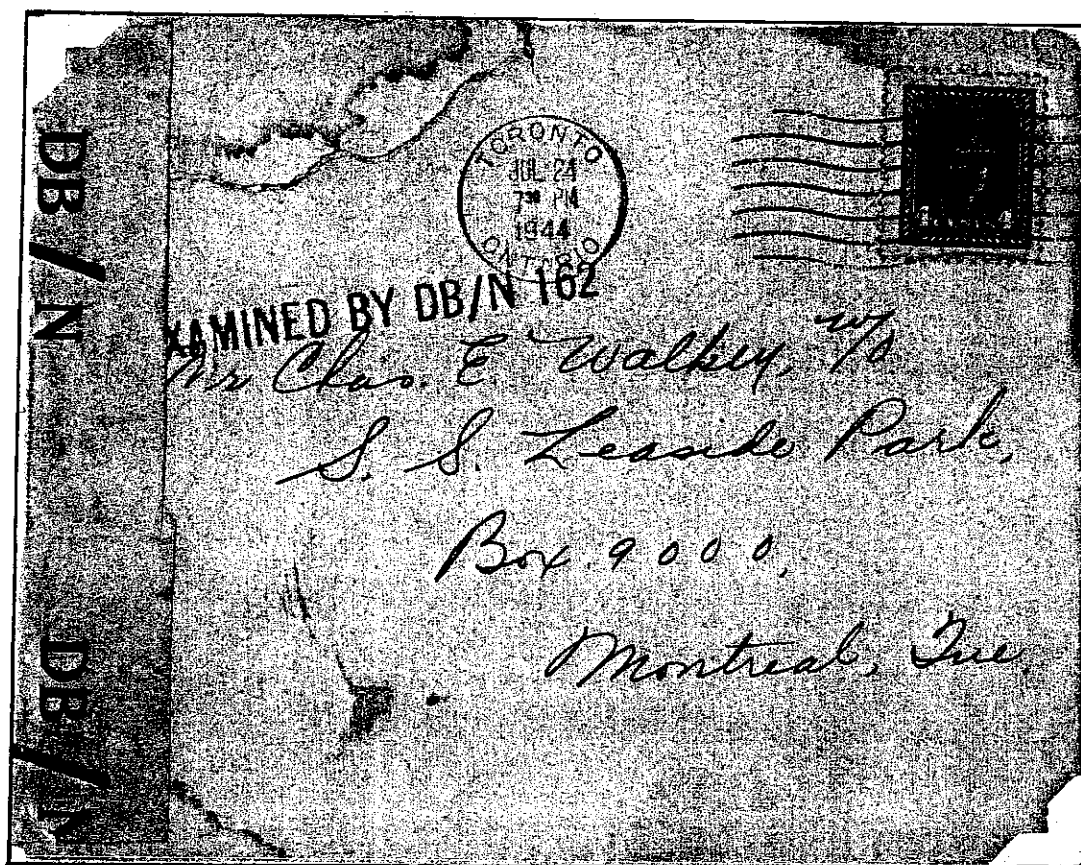 DB/N
DB/N
TORONTO
JUL 24
7³⁰ PM
1944
ONTARIO
XAMINED BY DB/N 162
Mr Chas. E. Walkey, W/O
S. S. Leaside Park,
Box 9000,
Montreal, Que.